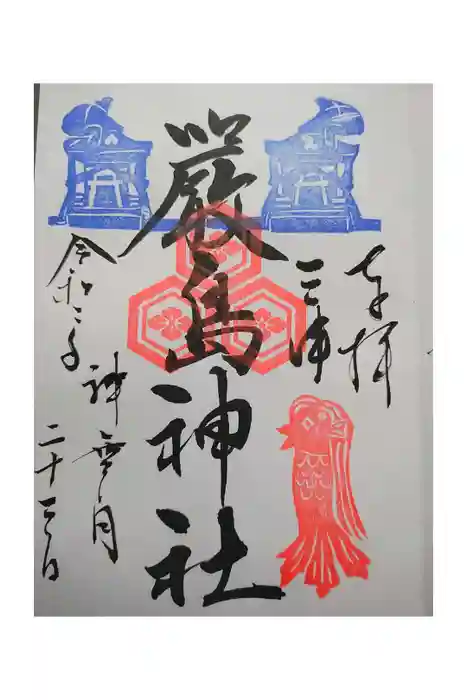 奉拝
三津
嚴島神社
令和二年
神無月
二十三日